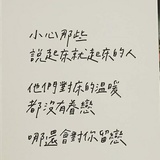 小心那些
說起床就起床的人
他們對床的溫暖
都沒有眷戀
哪還會對你留戀